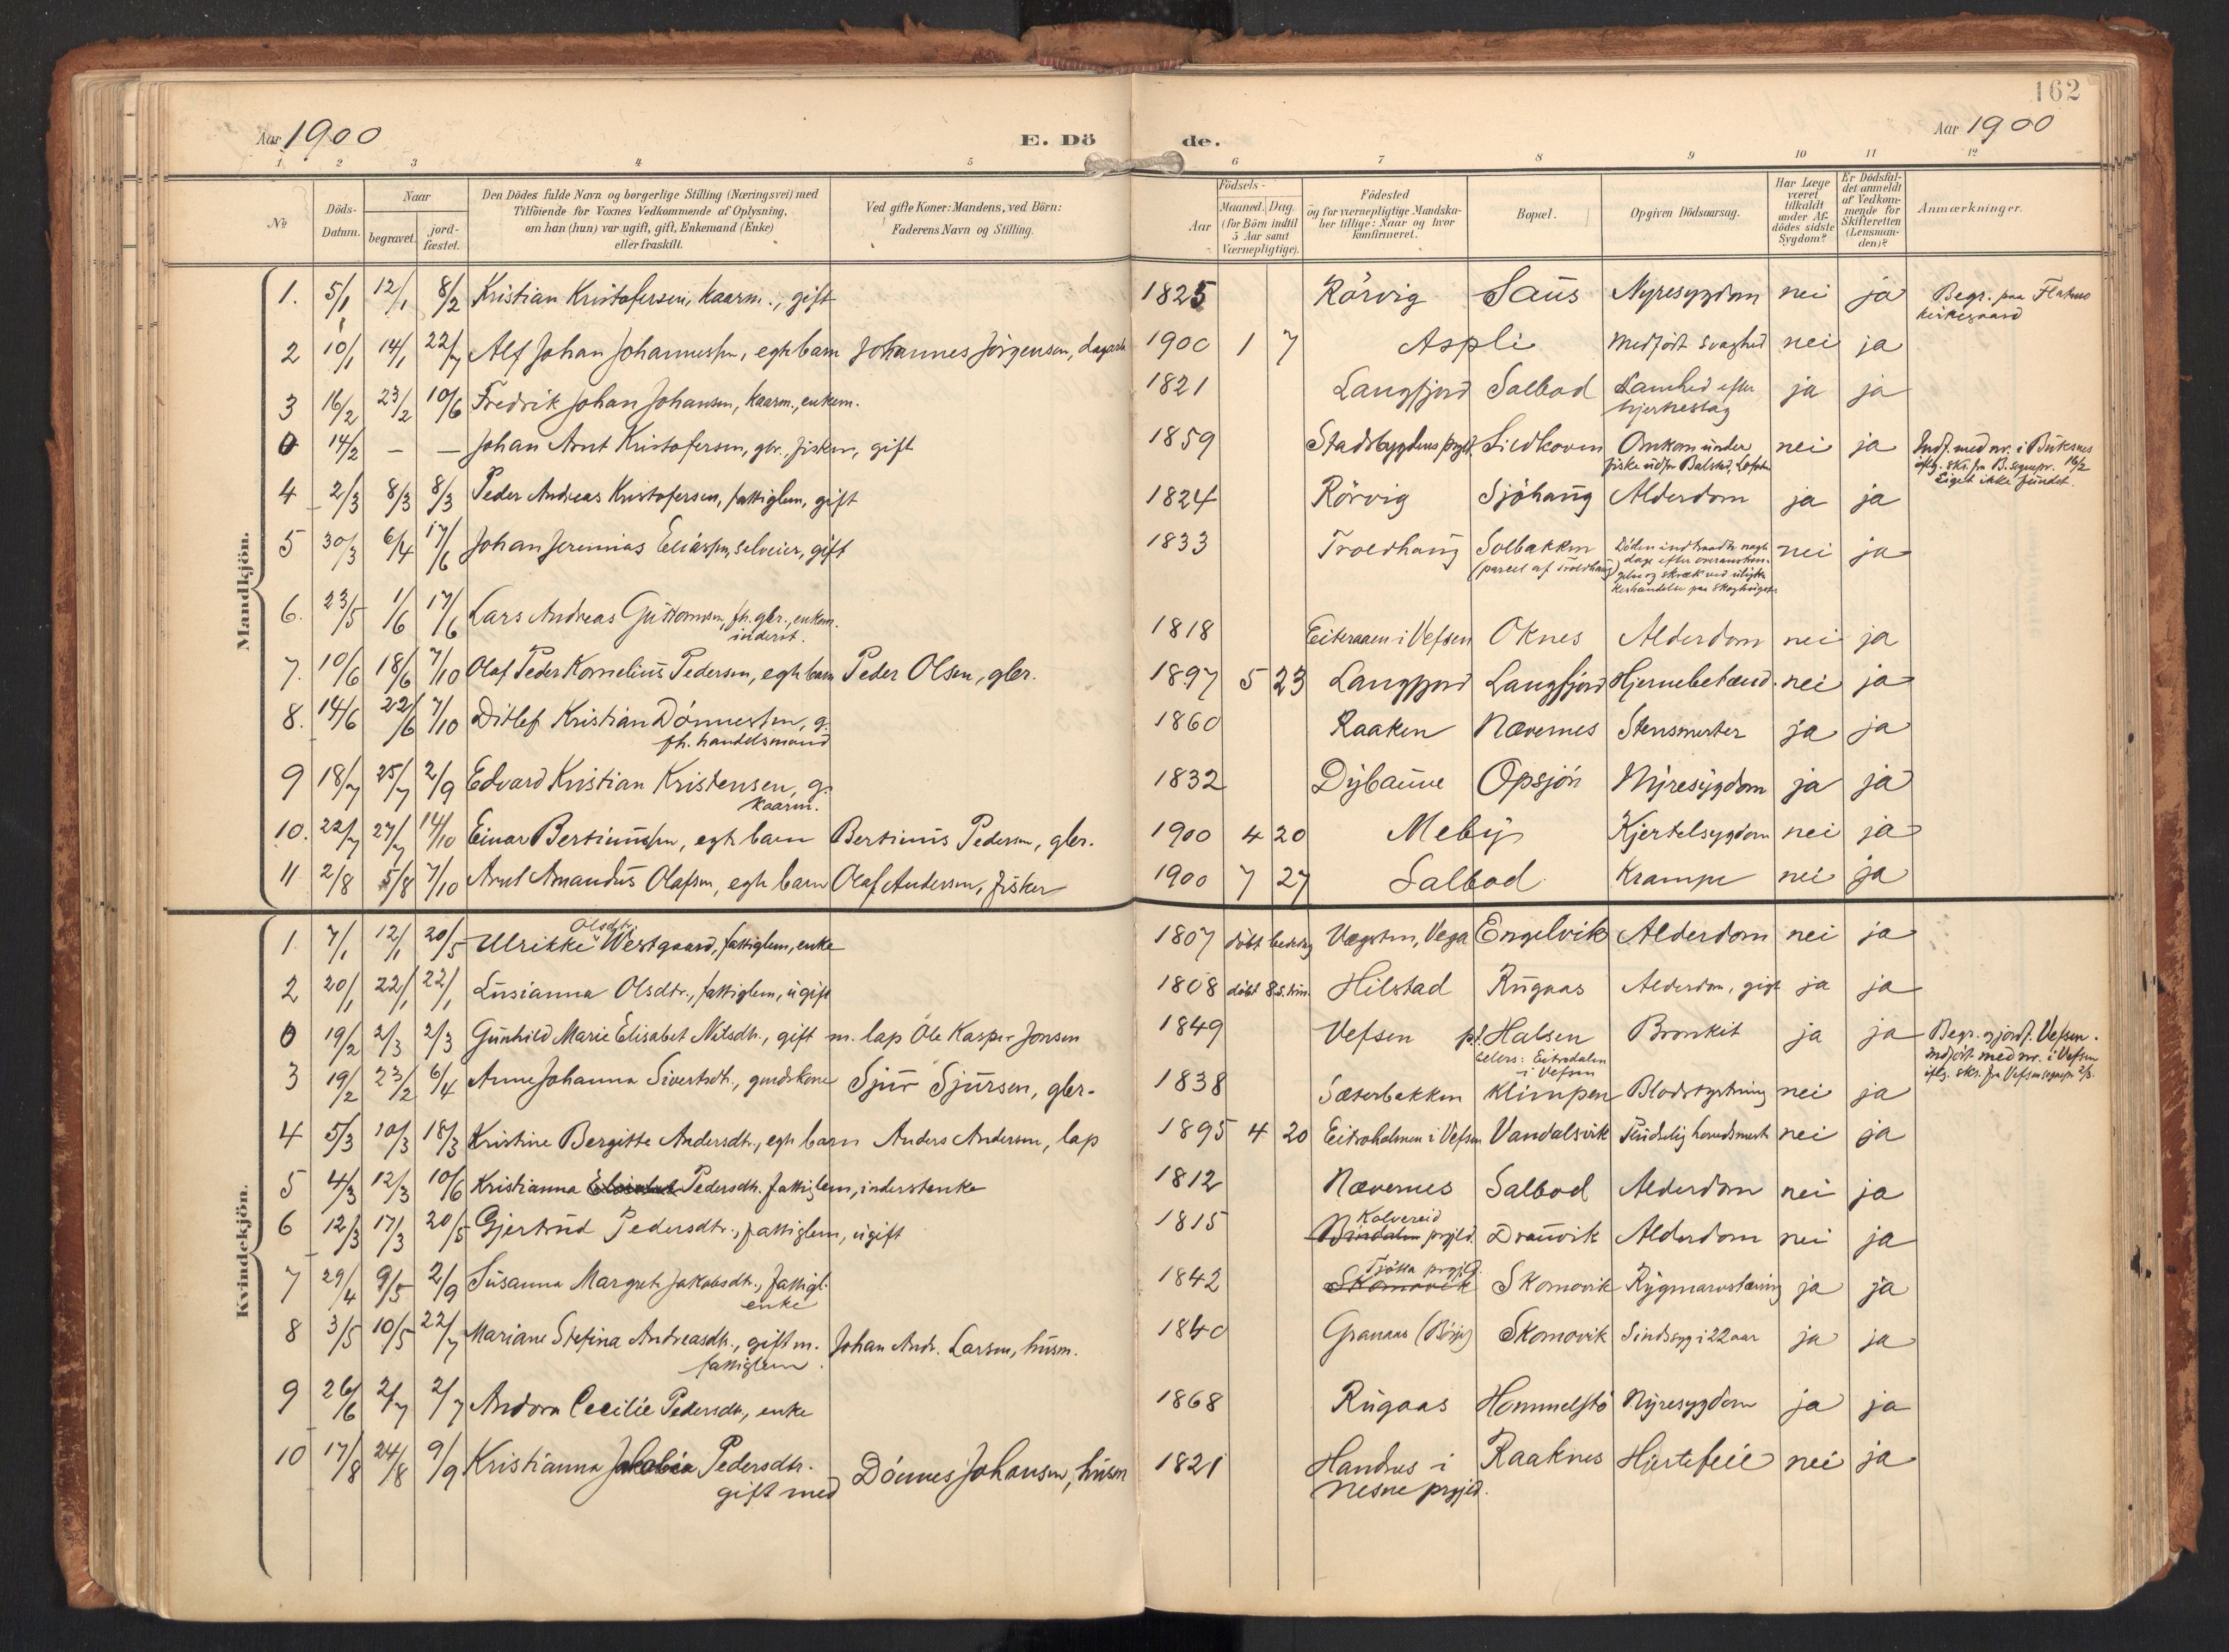 162
Aar 1900
E. Döde.
Aar 1900
1 2 3 4 5 6 7 8 9 10 11 12
№
Döds-Datum.
Naar
begravet.
jord-fæstet.
Den Dödes fulde Navn og borgerlige Stilling (Næringsvei) med
Tilföiende for Voxnes Vedkommende af Oplysning,
om han (hun) var ugift, gift, Enkemand (Enke)
eller fraskilt.
Ved gifte Koner: Mandens, ved Börn:
Faderens Navn og Stilling.
Födsels-
Aar
Maaned. Dag.
(for Börn indtil
5 Aar samt
Værnepligtige).
Födested
og for værnepligtige Mandska-
ber tillige: Naar og hvor
konfirmeret.
Bopæl.
Opgiven Dödsaarsag.
Har Læge
været
tilkaldt
under Af-
dödes sidste
Sygdom?
Er Dödsfal-
det anmeldt
af Vedkom-
mende for
Skifteretten
(Lensman-
den)?
Anmærkninger.
Mandkjön.
1. 5/1 12/1 8/2 Kristian Kristofersen, kaarm., gift 1825 Rörvig Saus Nyresygdom nei ja Begr. paa Flatmo
kirkegaard
2 10/1 14/1 22/7 Alf Johan Johannessen, egte barn Johannes Jörgensen, dagarb 1900 1 7 Aspli Medfödt svaghed nei ja
3 16/2 23/2 10/6 Fredrik Johan Johansen, kaarm., enkem. 1821 Langfjord Salbod Lamhed efter
hjerneslag ja ja
0 14/2 – – Johan Arnt Kristofersen, gbr. fisker, gift 1859 Stadsbygdens prgjld Sildhoven Omkom under
fiske udfor Balstad, Lofoten nei ja Indf. med nr. i Buksnes
iflg. skr. fra B. sognepr. 16/2
Liget ikke fundet.
4 2/3 8/3 8/3 Peder Andreas Kristofersen, fattiglem, gift 1824 Rörvig Sjöhaug Alderdom ja ja
5 30/3 6/4 17/6 Johan Jeremias Eliassen, selveier, gift 1833 Troldhaug Solbakken
(parcel af Troldhaug) Döden indtraadte nogle
dage efter overanstren-
gelse og skræk ved ulykke
nei ja
6. 23/5 1/6 17/6 Lars Andreas Guttormsen, fh. gbr., enkem.
inderst. 1818 Eiteraaen i Vefsen Oknes Alderdom nei ja
7. 10/6 18/6 7/10 Olaf Peder Kornelius Pedersen, egte barn Peder Olsen, gbr. 1897 5 23 Langfjord Langfjord Hjernebetænd. nei ja
8. 14/6 22/6 7/10 Ditlef Kristian Dönnessen, g.
fh. handelsmand 1860 Raaken Nævernes Stensmerter ja ja
9 18/7 25/7 2/9 Edvard Kristian Kristensen, g.
kaarm. 1832 Dybaune Opsjön Nyresygdom ja ja
10. 22/7 27/7 14/10 Einar Bertinussen, egte barn Bertinus Pedersen, gbr. 1900 4 20 Meby Kjertelsygdom nei ja
11 2/8 5/8 7/10 Arnt Amandus Olafsen, egte barn Olaf Andersen, fisker 1900 7 27 Salbod Krampe nei ja
Kvindekjön.
1. 7/1 12/1 20/5 Ulrikke Olsdtr. Westgaard, fattiglem, enke 1807 döbt Vega Engelvik Alderdom nei ja
2 20/1 22/1 22/1 Lusianna Olsdtr., fattiglem, ugift 1808 döbt Hilstad Rugaas Alderdom, gigt ja ja
0 19/2 2/3 2/3 Gunhild Marie Elisabet Nilsdtr., gift m. lap Ole Kasper Jonsen 1849 Vefsen pl. Halsen
ellers: Eiterdalen
i Vefsen Bronkit ja ja Begr. og jordf. Vefsen.
Indfört med nr. i Vefsen
iflg. skr. fra Vefsen sognepr 2/3.
3 19/2 23/2 6/4 Anne Johanna Sivertsdtr., gaardskone Sjur Sjursen, gbr. 1838 Sæterbakken Klimpen Blodstyrtning nei ja
4 5/3 10/3 18/3 Kristine Bergitte Andersdtr., egte barn Anders Andersen, lap 1895 4 20 Eiteraholmen i Vefsen Vandalsvik Pludselig hovedsmert nei ja
5 4/3 12/3 10/6 Kristianna Pedersdtr. fattiglem, inderstenke 1812 Nævernes Salbod Alderdom nei ja
6 12/3 17/3 20/5 Gjertrud Pedersdtr., fattiglem, ugift 1815 Kolvereid
Bindalen prgjld. Drauvik Alderdom nei ja
7 29/4 9/5 2/9 Susanna Margrete Jakobsdtr., fattigl.
enke 1842 Tjötta prgjld.
Skomovik Skomovik Rygmarvstæring ja ja
8 3/5 10/5 22/7 Mariane Stefina Andreasdtr., gift m.
fattiglem. Johan Andr. Larsen, husm. 1840 Granaas Skomovik Sindssyg i 22 aar ja ja
9 26/6 2/7 2/7 Andora Cecilie Pedersdtr., enke 1868 Rugaas Hommelstö Nyresygdom ja ja
10 17/8 24/8 9/9 Kristianna Jakobia Pedersdtr.
gift med Dönnes Johansen, husm 1821 Handnes i
Nesne prgjld. Raaknes Hjertefeil nei ja